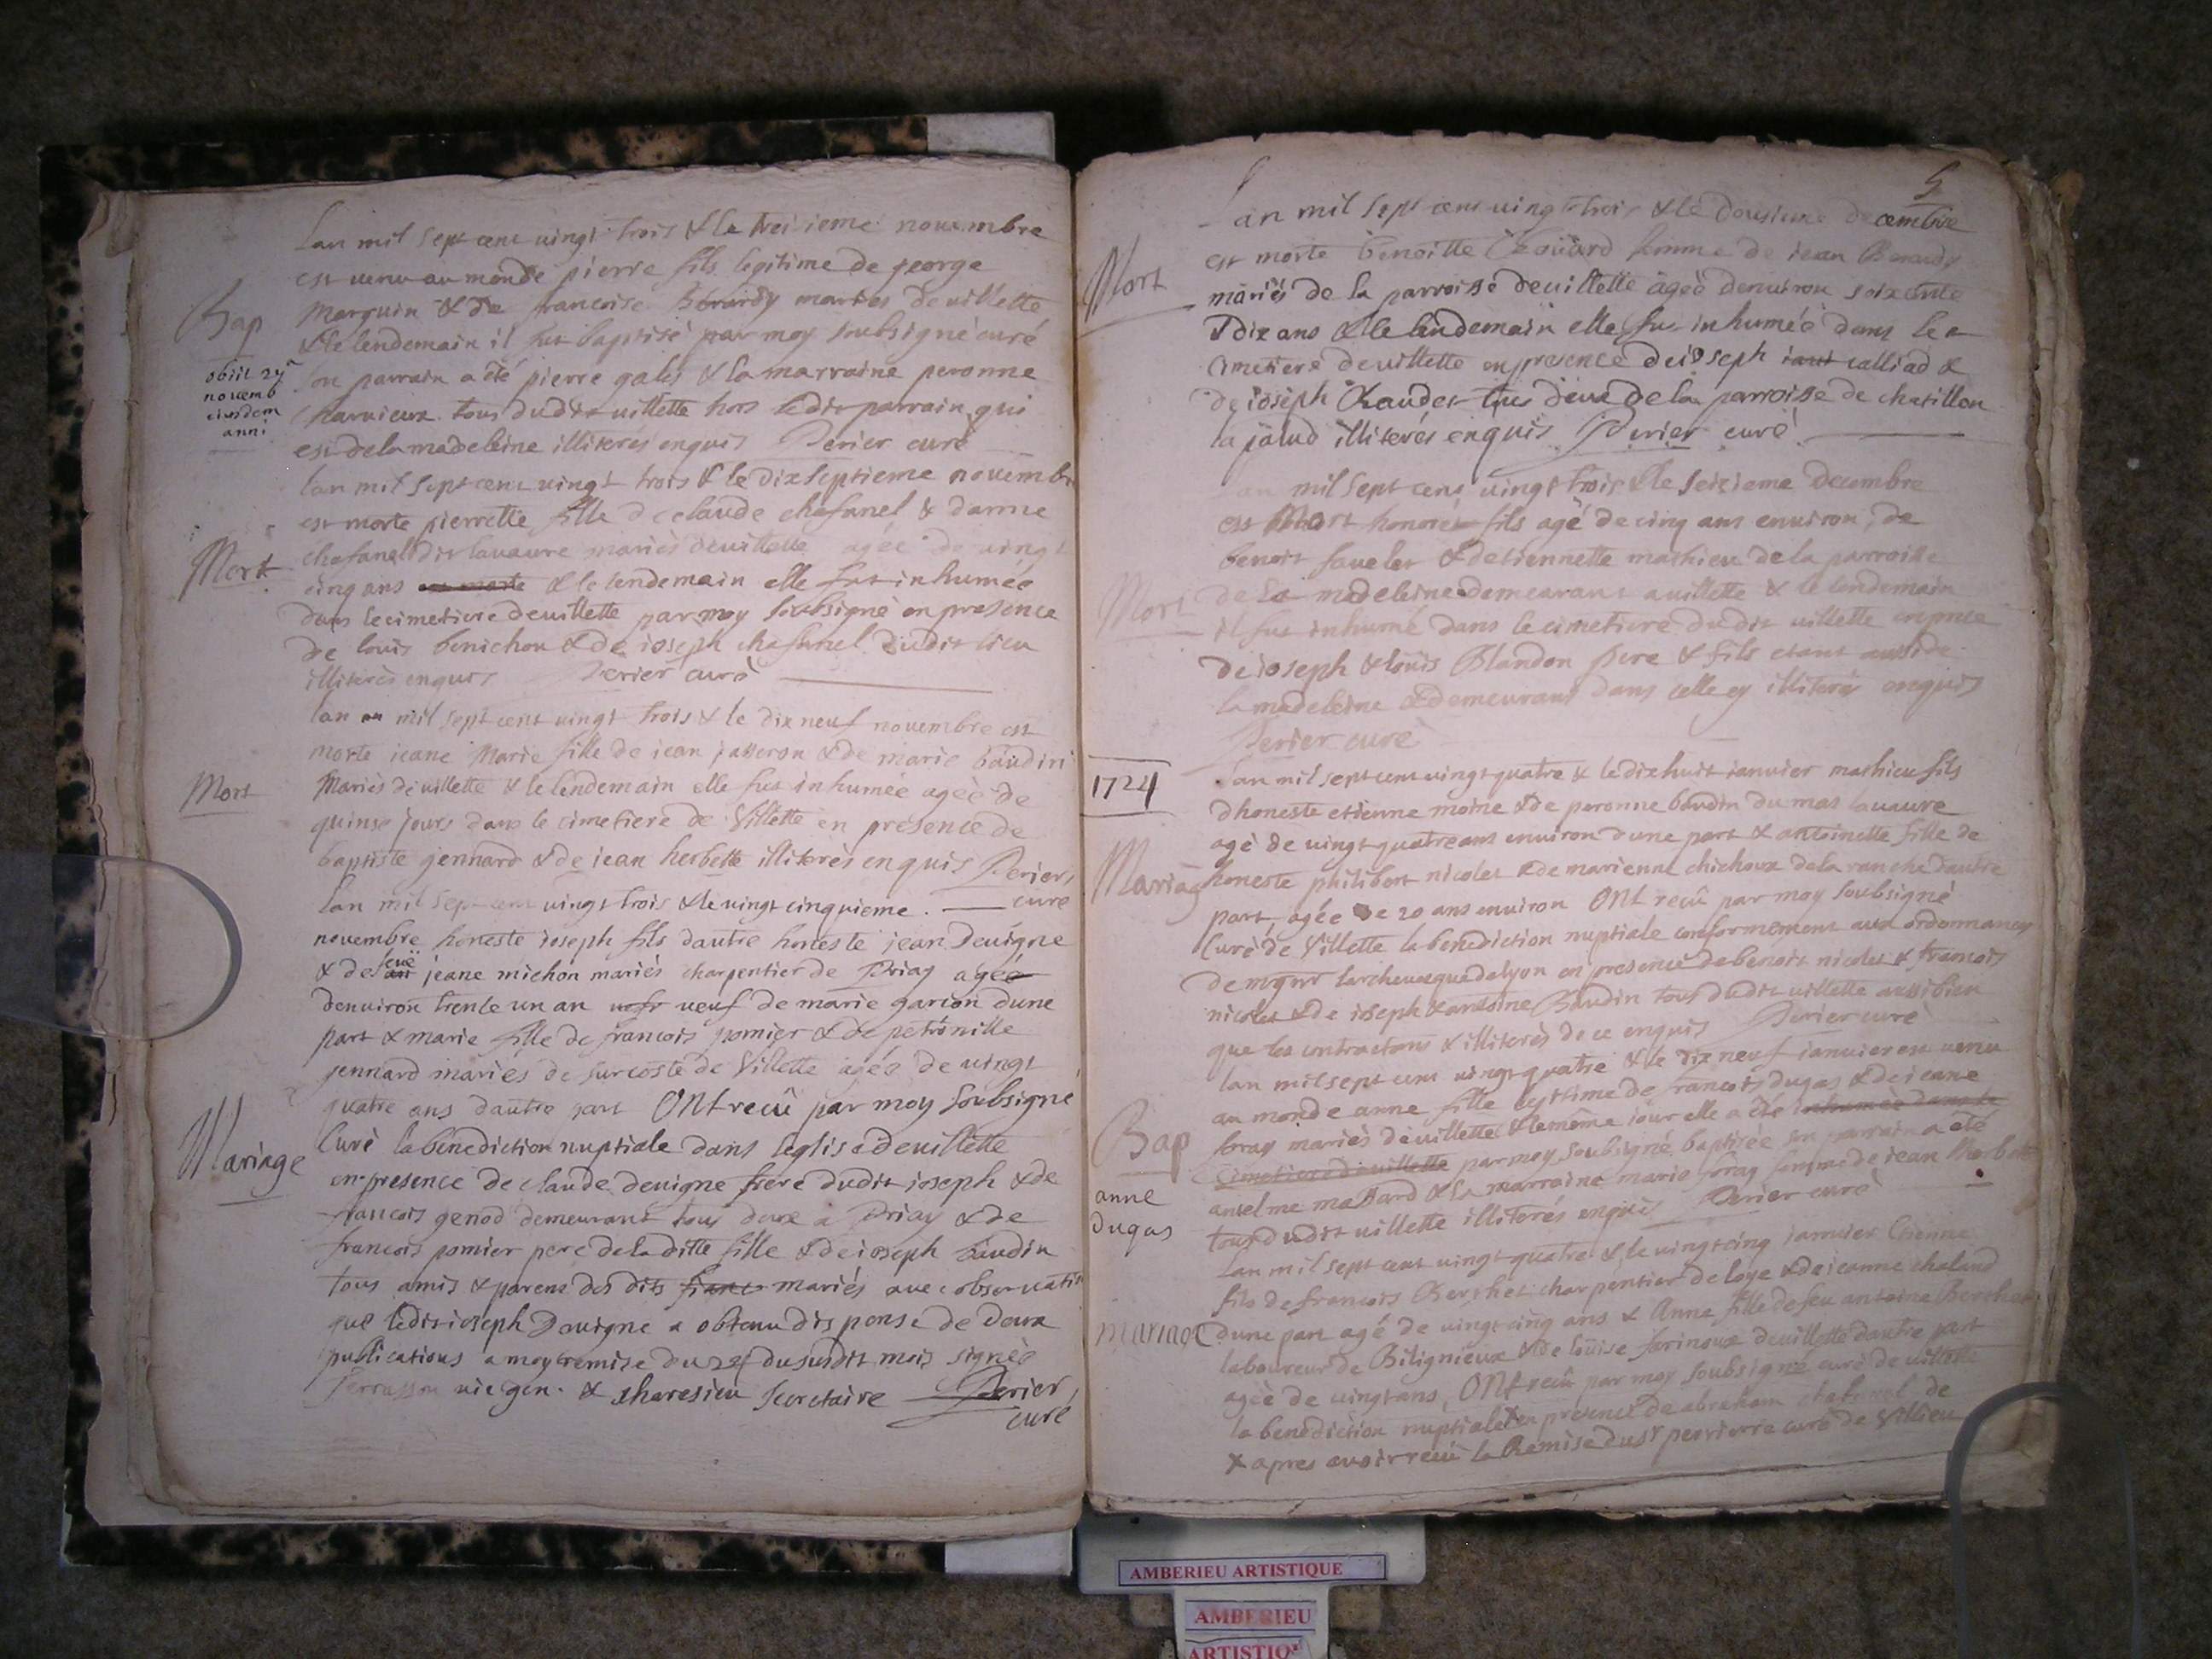 Lan mil sept cent vingt trois & le treisieme novembre
est venu au monde pierre fils legitime de george
Bap
marguin & de francoise Berardy mariés de villette
& le lendemain il fut baptisé par moy soubsigné curé
obiit 27a
novemb
eiusdem
anni
son parrain a été pierre galet & la marraine peronne
charvieux tous dudit villette hors ledit parrain qui
est de la madeleine illiterés enquis Perier curé
lan mil sept cent vingt trois & le dix septieme novembr
est morte pierrette fille de claude chafanel & danne
Mort
chafanel dit lavaure mariés de villette agée de vingt
cinq ans est morte & le lendemain elle fut inhumée
dans le cimetiere de villette par moy soubsigné en presence
de louis benichon & de ioseph chafanel dudit lieu
illiterés enquis Perier curé
lan mil sept cent vingt trois & le dix neuf novembre est
morte ieane Marie fille de iean passeron & de marie baudin
Mort
Mariés de villette & le lendemain elle fut inhumée agée de
quinse jours dans le cimetiere de Villette en presence de
baptiste jennard & de iean herbette illiterés enquis Perier
curé
lan mil sept cent vingt trois & le vingt cinquieme
novembre honeste ioseph fils dautre honeste jean Devigne
& de feüe jeane michon mariés charpentier de Priay agée
denviron trente un an vefr veuf de marie garcon dune
part & marie fille de francois pomier & de petronille
jennard mariés de surcoste de Villette agée de vingt
quatre ans dautre part ONt recû par moy soubsigné
Mariage
Curé la benediction nuptiale dans leglise de villette
en presence de claude devigne frere dudit ioseph & de
francois genod demeurant tous deux a Priay & de
francois pomier pere de la ditte fille & de ioseph baudin
tous amis & parens des dits fianc mariés avec observatiō
que ledit ioseph Devigne a obtenu dispense de deux
publications a moy remise du 24 du susdit mois signée
Terrasson vic gen. & charesieu secretaire Perier
curé
5
Lan mil sept cent vingt trois & le dousieme decembre
Mort
est morte benoitte Chouard femme de iean Berardy
mariés de la parroisse de villette agée denviron soixante
& dix ans & le lendemain elle fut inhumée dans le
cimetiere de villette en presence de ioseph calliad &
de ioseph Chaudet tous deux de la parroisse de chatillon
la palud illiterés enquis Perier curé
Lan mil sept cent vingt trois & le seizieme decembre
est Mort honoré fils agé de cinq ans environ, de
benoit favelet & detiennette mathieu de la parroisse
Mort
de la madeleine demeurant a villette & le lendemain
il fut inhumé dans le cimetiere dudit villette en pnce
de ioseph & loüis Blandon pere & fils etant aussi de
la madeleine & demeurant dans celle cy illiterés enquis
Perier curé
1724
Lan mil sept cent vingt quatre & le dix huit ianvier mathieu fils
dhoneste etienne moine & de peronne baudin du mas lavaure
agé de vingt quatre ans environ dune part & antoinette fille de
Mariag
honeste philibert nicolet & de marienne chichoux de la ranche dautre
part, agée de 20 ans environ ONt recû par moy soubsigné
Curé de Villette la benediction nuptiale conformement aux ordonnances
de mgnr larcheuesque de lyon en presence de benoit nicolet & francois
nicolet & de ioseph & antoine Baudin tous dudit villette aussi bien
que les contractans & illiterés de ce enquis Perier curé
lan mil sept cent vingt quatre & le dix neuf ianvier est venu
au monde anne fille legitime de francois dugas & de ieane
Bap
foray mariés de villette & le même iour elle a été inhumée dans le
cimetiere de villette par moy soubsigné baptisée son parrain a été
anne
dugas
anselme massard & la marraine marie foray femme de iean herbette
tous dudit villette illiterés enquis Perier curé
Lan mil sept cent vingt quatre & le vingt cinq ianvier Etienne
fils de francois Berthet charpentier de loye & de ieanne chaland
mariage
dune part agé de vingt cinq ans & Anne fille de feu antoine Berthet
laboureur de Bilignieux & de loüise farinoux de villette dautre part
agée de vingt ans, ONt recû par moy soubsigné curé de villette
la benediction nuptiale x en presence de abraham chafanel de
x apres avoir recû la Remise du sr perrierre curé de Villieu
AMBERIEU ARTISTIQUE
AMBERIEU
ARTISTIQ